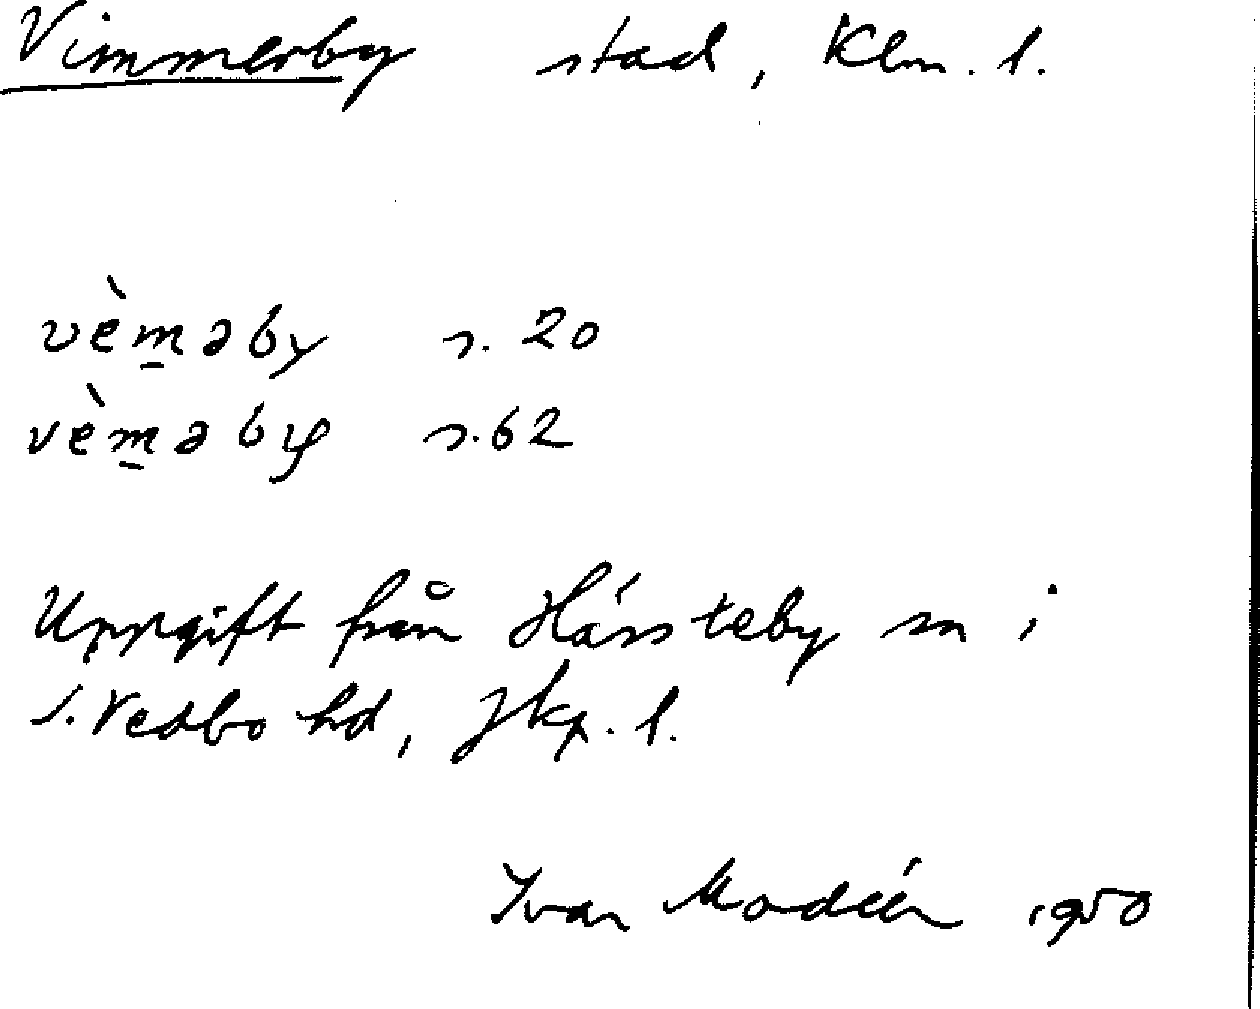 Vimmerby stad, Klm. l.
vèm̱əby s. 20
vèm̱əby s. 62
Uppgift från Hässleby sn i
S. Vedbo hd, Jkp. l.
Ivar Modéer 1950